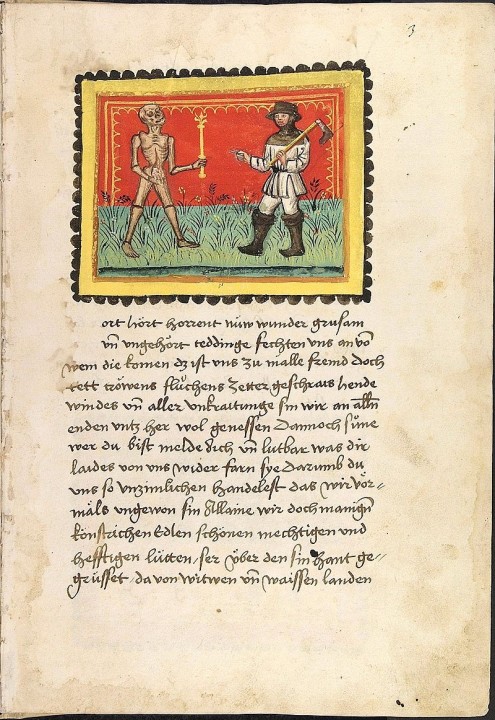 3
ort hört horrent nüw wunder grusam
vn̄ vngehört teddinge fechten vns an vō
wem die komen dz ist vns zu mālle fremd doch
tett tröwens fluͦchens zetter geschrais hende
windes vn̄ aller ankraitunge sin wir an alln̄
enden vntz her wol genessen Dannoch süne
wer du bist melde dich vn̄ lutbar was dir
laides von vns wider farn sye Darumb du
vns so vnzimlichen handelest das wir vor-
māls vngewon sin Allaine wir doch manign̄
künstrichen Edlen schönen mechtigen vnd
hefftigen lütten ser über den sin hant ge-
grüsset da von witwen vn̄ waissen landen